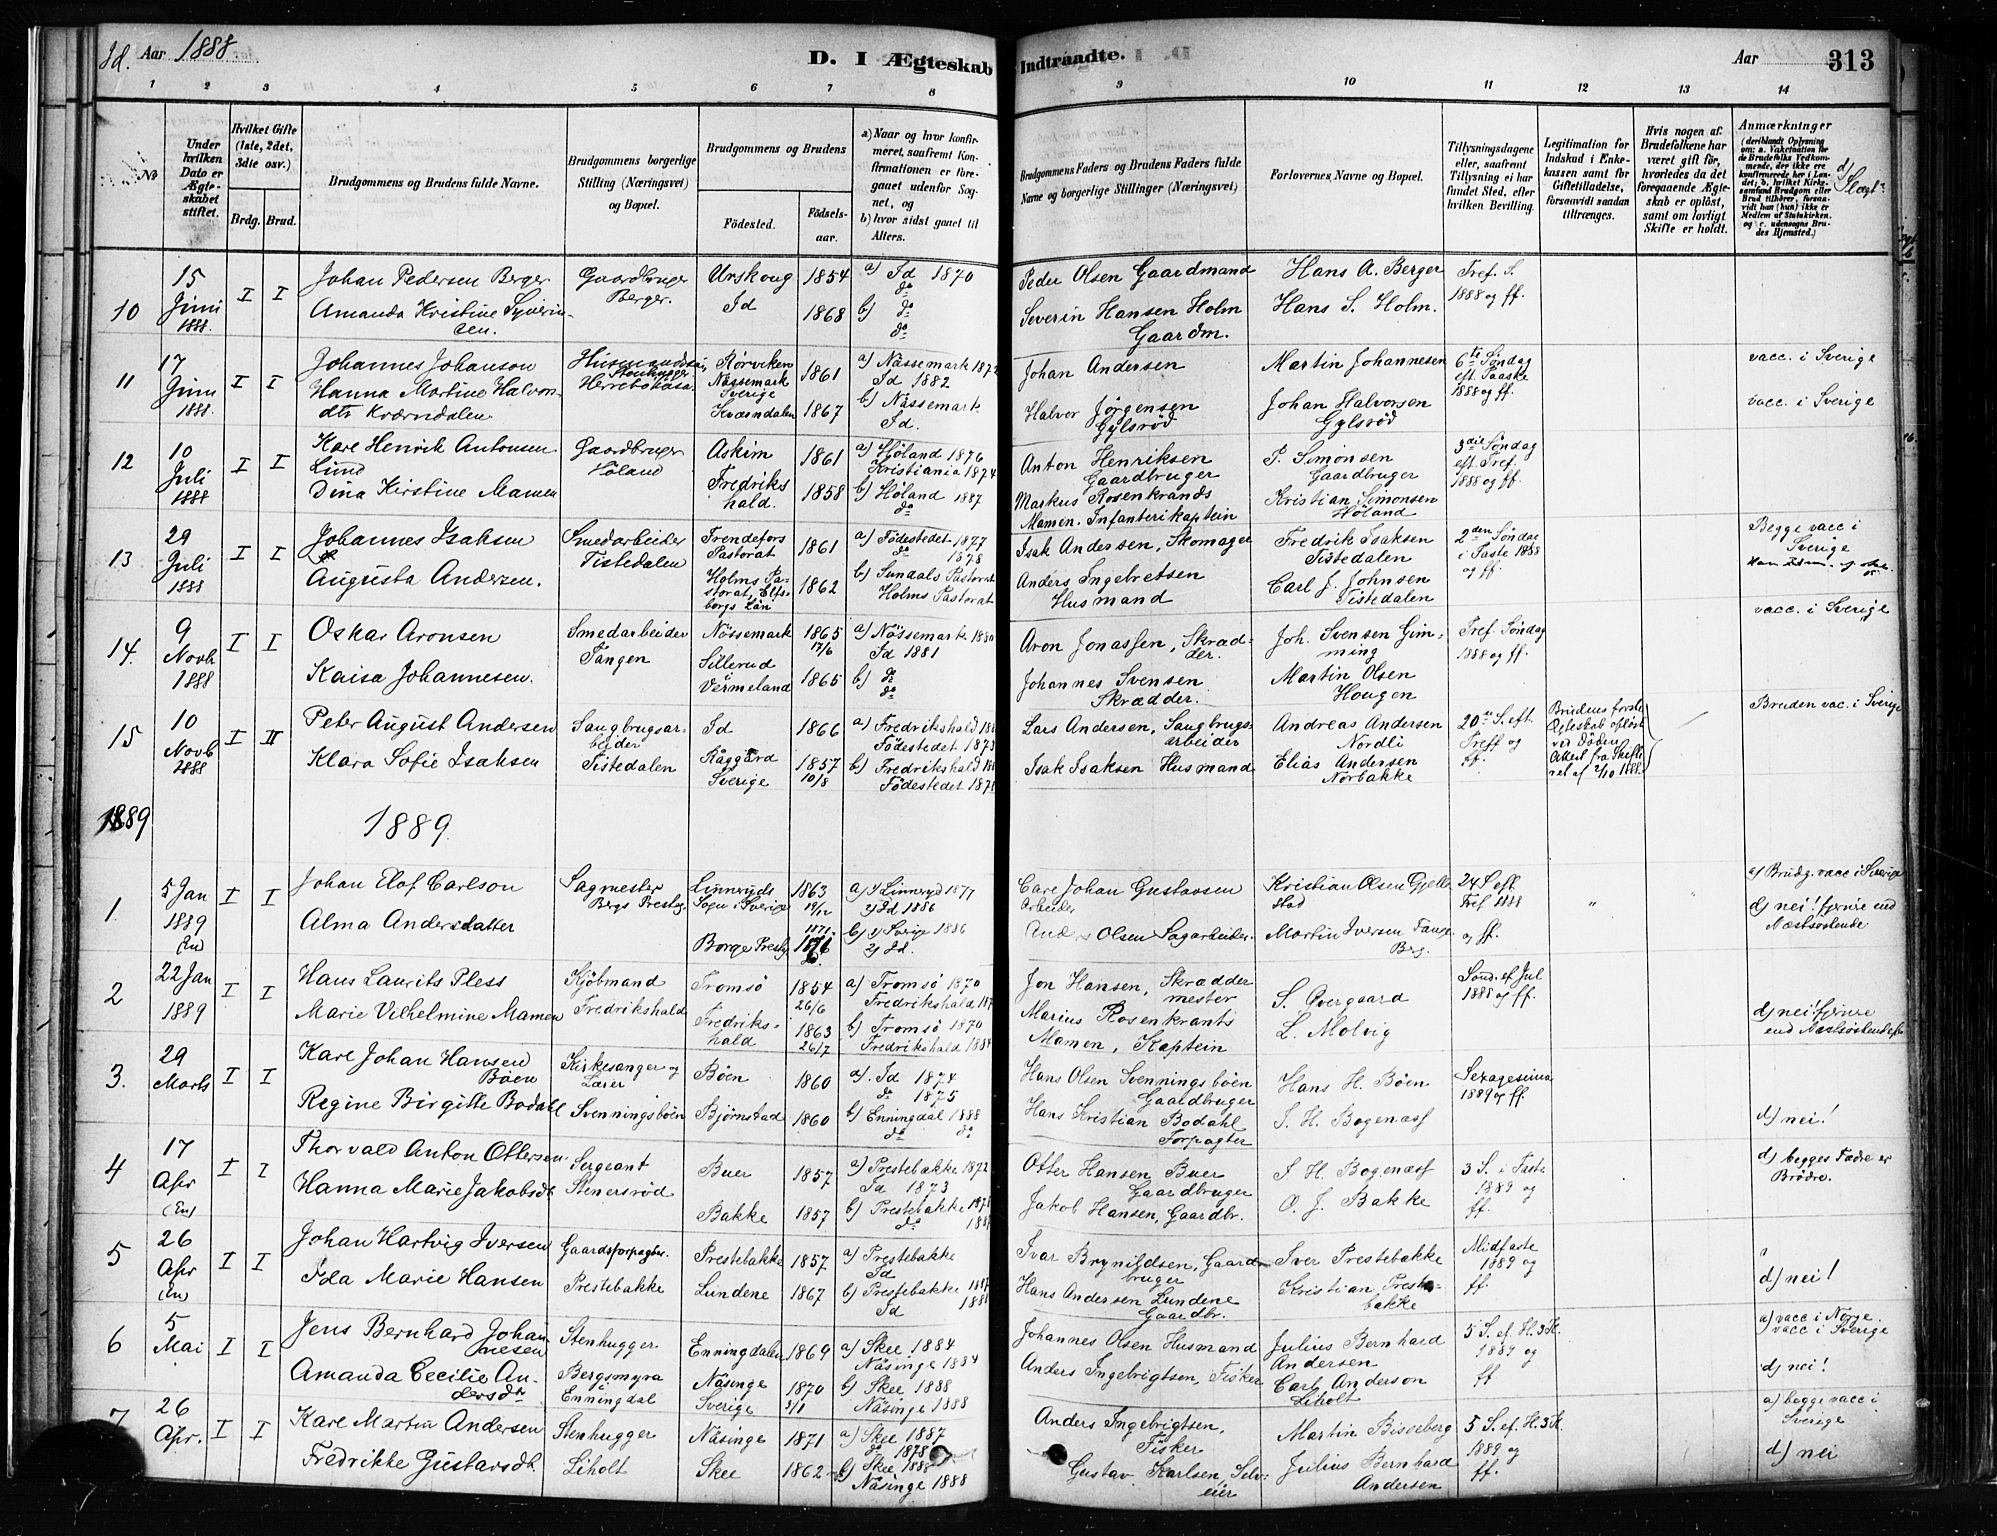 Id. Aar 1888.
D. I Ægteskab Indtraadte.
Aar 313
1 2 3 4 5 6 7 8 9 10 11 12 13 14
No
Under hvilken Dato er Ægteskabet stiftet.
Hvilket Gifte (1ste, 2det, 3die osv.)
Brdg. Brud.
Brudgommens og Brudens fulde Navne.
Brudgommens borgerlige Stilling (Næringsvei) og Bopæl.
Brudgommens og Brudens
Födested. Födselsaar.
a) Naar og hvor konfirmeret, saafremt Konfirmationen er foregaaet udenfor Sognet, og
b) hvor sidst gaaet til Alters.
Brudgommens Faders og Brudens Faders fulde Navne og borgerlige Stillinger (Næringsvei)
Forlovernes Navne og Bopæl.
Tillysningsdagene eller, saafremt Tillysning ei har fundet Sted, efter hvilken Bevilling.
Legitimation for Indskud i Enkekassen samt for Giftetilladelse, forsaavidt saadan tiltrænges.
Hvis nogen af Brudefolkene har været gift før, hvorledes da det foregaaende Ægteskab er opløst, samt om lovligt Skifte er holdt.
Anmærkninger
(deriblandt Oplysning om: a. Vakcination for de Brudefolks Vedkommende, der ikke ere konfirmerede her i Landet; b. hvilket Kirkesamfund Brudgom eller Brud tilhører, forsaavidt han (hun) ikke er Medlem af Statskirken, og c. udensogns Brudes Hjemsted.)
d) Slægt
10 15 Juni 1888. I I
Johan Pedersen Berger Gaardbruger Berger. Urskoug 1854 a) Id 1870
Amanda Kristine Syverinsen. Id 1868 b) do do
Peder Olsen Gaardmand Hans A. Berger Tref. S. 1888 og ff.
Severin Hansen Holm Gaardm. Hans S. Holm.
11 17 Juni 1888. I I
Johannes Johanson Herrebøkasa Rörviken Nässemark Sverige 1861 a) Nässemark 1872 Id 1882
Hanna Martine Halvorsdtr Kværndalen Kværndalen 1867 b) Nässemark Id.
Johan Andersen Martin Johannesen 6te Søndag eft Paaske 1888 og ff. vacc. i Sverige
Halvor Jörgensen Gylsrød Johan Halvorsen Gylsrød vacc. i Sverige
12 10 Juli 1888 I I
Karl Henrik Antonsen Lund Gaardbruger Høland Askim 1861 a) Høland 1876 Kristiania 1874
Dina Kirstine Mamen Fredrikshald. 1858 b) Høland 1887 do
Anton Henriksen Gaardbruger P. Simonsen Gaardbruger 3die Søndag eft. Tref. 1888 og ff.
Markus Rosenkrands Mamen. Infanterikaptein Kristian Simonsen Høland
13 29 Juli 1888 I I
Johannes Isaksen Smedarbeider Tistedalen Frendefors Pastorat 1861 a) Födestedet 1877 do 1878
Augusta Andersen. Holms Pastorat, Elfsborgs Län 1862 b) Sundals Pastorat Holms Pastorat
Isak Andersen, Skomager Fredrik Isaksen Tistedalen 2den Søndag i Faste 1888 og ff. Begge vacc i Sverige
Anders Ingebretsen Husmand Carl J. Johnsen Tistedalen
14. 9 Novb 1888 I I
Oskar Aronsen Smedarbeider Tangen Nössemark 1865 17/6 a) Nössemark 1880 Id 1881
Kaisa Johannesen. Sillerud Vermeland 1865 b) do do
Aron Jonassen, Skrædder. Joh. Svensen Gimming Tref. Søndag 1888 og ff. vacc. i Sverige
Johannes Svensen Skrædder. Martin Olsen Hougen
15 10 Novb 1888 I II
Peter August Andersen Saugbrugsarbeider Tistedalen Id 1866 a) Fredrikshald Födestedet 1873
Klara Sofie Isaksen Raggärd Sverige 1857 10/8 b) Fredrikshald Födestedet
Lars Andersen, Saugbrugsarbeider Andreas Andersen Nordli 20de S. eft Treff og ff.
Isak Isaksen Husmand Elias Andersen Norbakke
Brudens første Ægteskab opløst ved Døden. Attest fra Skifteret af 2/10 1888.
Bruden vac. i Sverige
1889 1889.
1. 5 Jan 1889 (En) I I
Johan Elof Carlson Sagmester Bergs Prestg. Linneryds Sogn i Sverige 1863 19/12 a) 1) Linneryd 1877 2) Id 1886
Alma Andersdatter Borge Prestg. 1871 b) 1) Sverige 1886 2) Id.
Carl Johan Gustavsen Arbeider Kristian Olsen Gjellestad 24 S eft Tref 1888 og ff. " " a) Brudg. vacc i Sverige
Anders Olsen Sagarbeider. Martin Iversen Berg. d) nei! fjernere end Næstsøskende
2 22 Jan 1889 I I
Hans Laurits Pless Kjöbmand Fredrikshald Tromsö 1854 26/6 a) Tromsö 1870 Fredrikshald
Marie Vilhelmine Mamen Fredrikshald 1863 26/7 b) Tromsö 1870 Fredrikshald 1884
Jon Hansen, Skræddermester S. Overgaard Sønd. ef Jul 1888 og ff.
Marius Rosenkrants Mamen, Kaptein L. Molvig d) nei! fjernere end Næstsøskende
3. 29 Marts I I
Karl Johan Hansen Böen Kirkesanger og Lærer Böen 1860 a). Id 1874 do 1875
Regine Birgitte Bodahl Svenningsböen Bjørnstad 1860 b) Enningdal 1888 do do
Hans Olsen Svenningsböen Gaardbruger Hans H. Böen Sexagesima 1889 og ff.
Hans Kristian Bodahl Forpagter I. H. Bogenæss d) nei!
4 17 Apr (En) I I
Thorvald Anton Ottersen. Sergeant Stenersrød Buer 1857 a) Prestebakke 1872 Id 1873
Hanna Marie Jakobsdt Bakke 1857 b) Prestebakke do
Otter Hansen Buer Gaardbruger I. H. Bogenæss 3 S. i Faste 1889 og ff. d) begges Fædre er Brödre.
Jakob Hansen, Gaardbr. O. J. Bakke
5 26 Apr (En) I I
Johan Hartvig Iversen Gaardsforpagter. Prestebakke 1857 a) Prestebakke Id
Ida Marie Hansen Prestebakke Lundene 1867 b) Prestebakke 1887 Id 1888
Ivar Brynildsen, Gaardbruger Iver Prestebakke Midfaste 1889 og ff.
Hans Andersen Lundene Gaardbr. Kristian Prestebakke d) nei!
6 5 Mai I I
Jens Bernhard Johannesen Stenhugger Enningdalen 1869 a) Skee 1884 Näsinge 1884
Amanda Cecilie Andersdtr Bergsmyra i Enningdal Näsinge Sverige 1870 3/1 b) Skee 1888 Näsinge 1888
Johannes Olsen Husmand Julius Bernhard Andersen 5 S. ef. H. 3 K. 1889 og ff a) vacc i Norge. vacc i Sverige
Anders Ingebrigtsen, Fisker Carl Anderson Liholt d) nei!
7 26 Apr. I I
Karl Martin Andersen Stenhugger Näsinge 1871 a) Skee 1887 do 1878
Fredrikke Gustavsdt. Liholt Skee 1862 b) Skee 1888 Näsinge 1888
Anders Ingebrigtsen, Fisker Martin Bisseberg 5 S. ef. H. 3 K. 1889 og ff. a) begge vacc i Sverige
Gustav Karlsen, Selveier Julius Bernhard Andersen d) nei